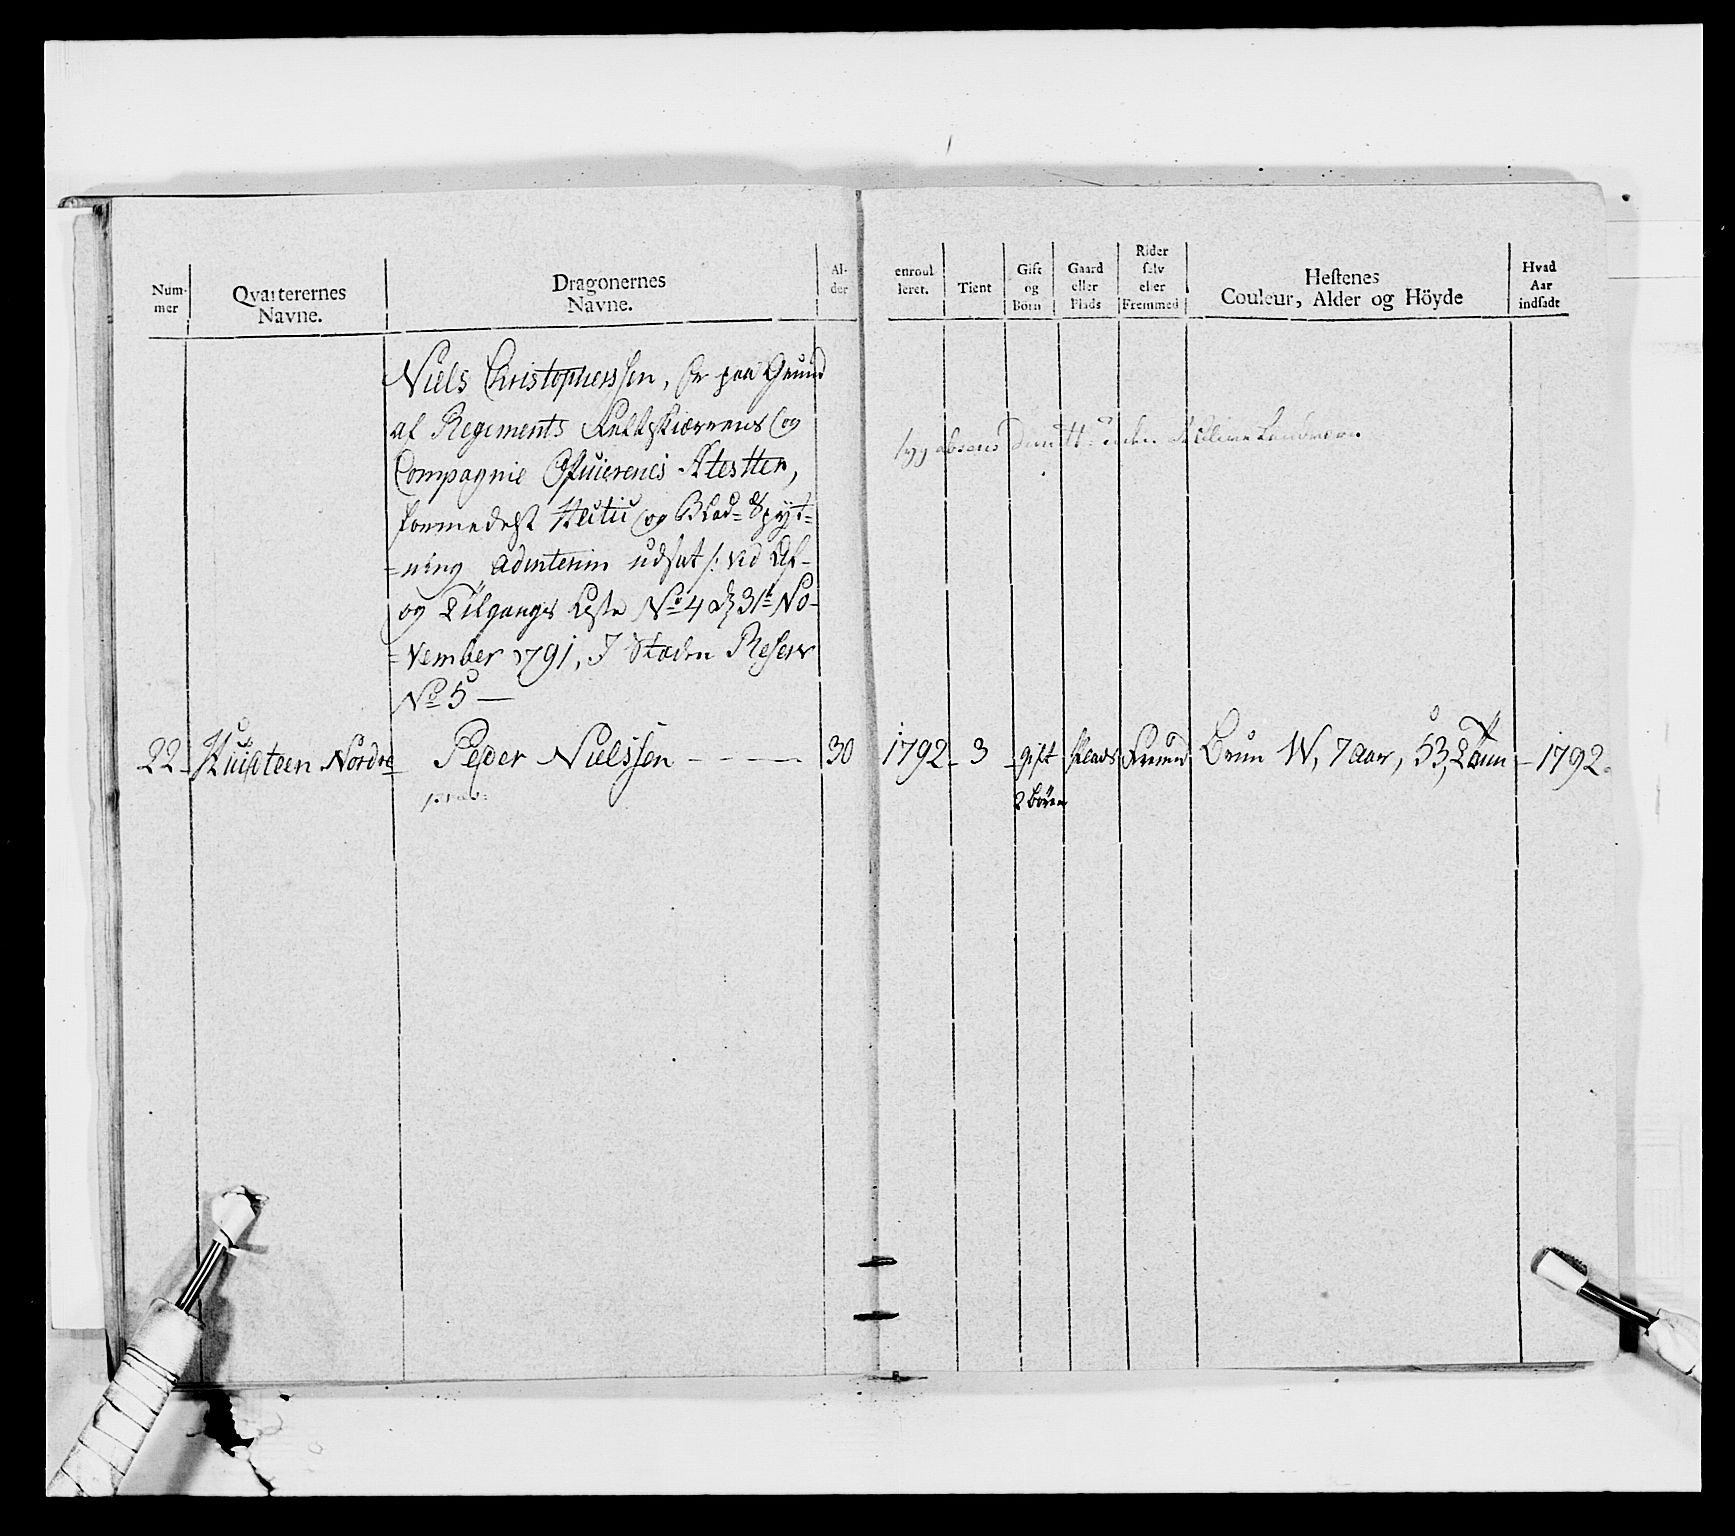 Num-
mer
Qvarterernes
Navne.
Dragonernes
Navne.
Al-
der
enroul
leret.
Tient
Gift
og
Börn
Gaard
eller
Plads
Rider
selv
eller
Fremmed
Hestenes
Couleur, Alder og Höyde
Hvad
Aar
indsadt
Niels Christopherssen, er paa Grund
af Regiments Feltskiærerens og
Compagnie Officerenes Attester,
formedelst Hectic og Blod-Spyt-
-ning adinterim udsat /: vid Af-
og Tilgangs Liste No 4 31te No-
-vember 1791, I Stæden Reserv
No 5 —
22 Nordre Peder Nielssen - - - - 30 1792 3 gift Plads Fremd Brun W, 7 Aar, 53, Tom 1792
2 Börn